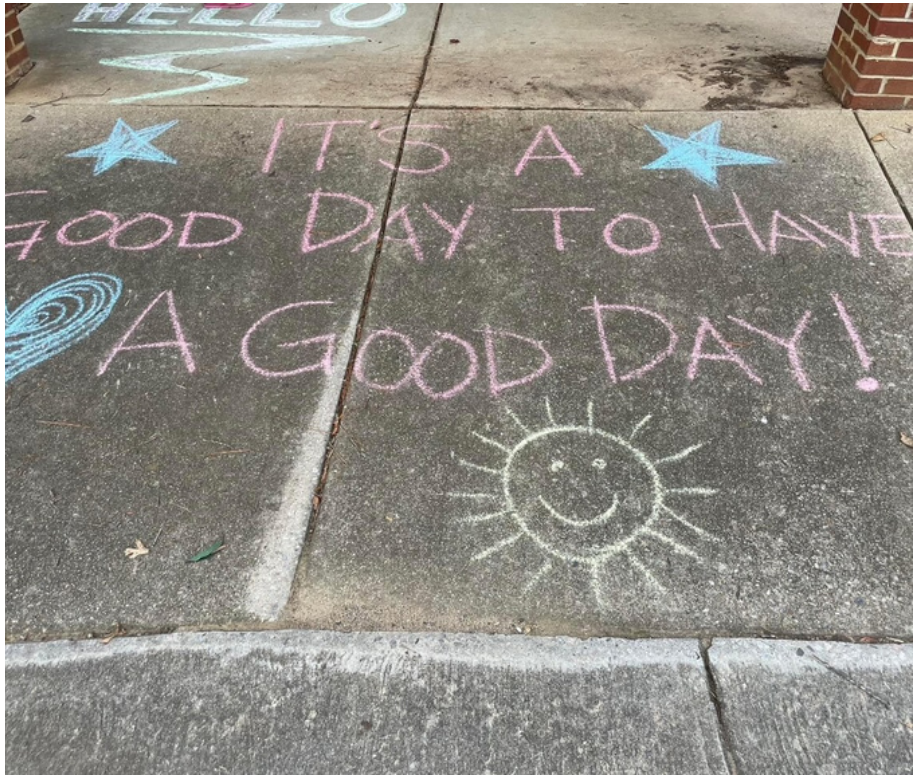 HELLO
IT'S A
GOOD DAY TO HAVE
A GOOD DAY!